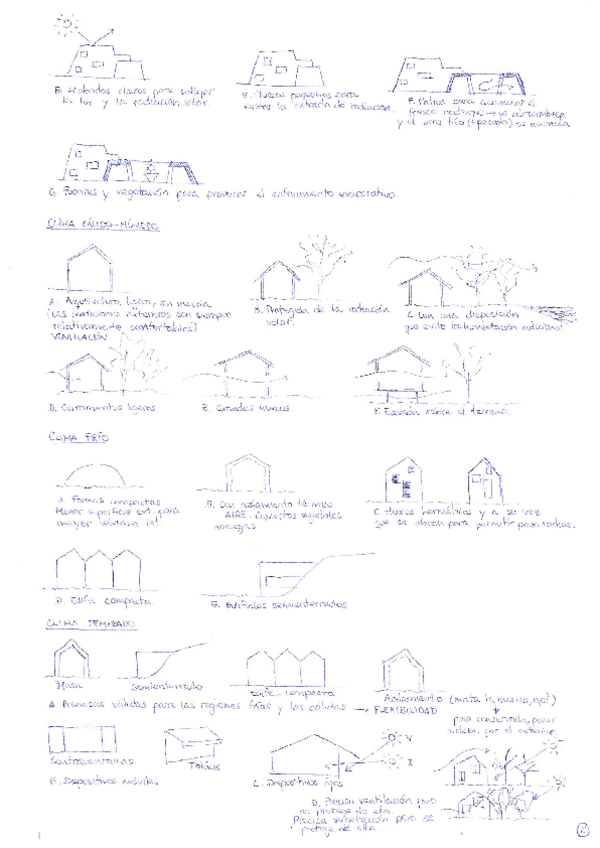 D. Acabados claros para reflejar
la luz y la radiación solar.
E. Huecos pequeños para
evitar la entrada de radiación.
F. Patios para acumular el
fresco nocturno → se
y el aire frío (+pesado) se acumula
G. Fuentes y vegetación para provocar el enfriamiento evaporativo.
CLIMA CÁLIDO-HÚMEDO
A. Arquitectura ligera, sin inercia
(las condiciones nocturnas son siempre
relativamente confortables)
VENTILACIÓN
B. Protegida de la radiación
solar.
C. Con una disposición
que evite la humectación adicional.
D. Cerramientos ligeros
E. Grandes huecos
F. sobre el terreno.
CLIMA FRÍO
A. Formas compactas
Menor superficie ext. para
mayor volumen int.
B. Con aislamiento térmico
AIRE. Cubiertas vegetales
C. Huecos herméticos y a su vez
que se abran para permitir
D. Edific. compacta
E. Edificios semienterrados
CLIMA TEMPLADO
Masa
Semienterrado
Edific. compacta
Aislamiento (mata la inercia, ojo!)
A. válidas para las regiones frías y las cálidas → FLEXIBILIDAD
para conservarla, poner
aislam. por el exterior.
Contraventanas
Toldos
B. Dispositivos móviles
C. Dispositivos fijos
V
I
D. Precisa ventilación pero
se protege de ella
Precisa vegetación pero se
protege de ella
2